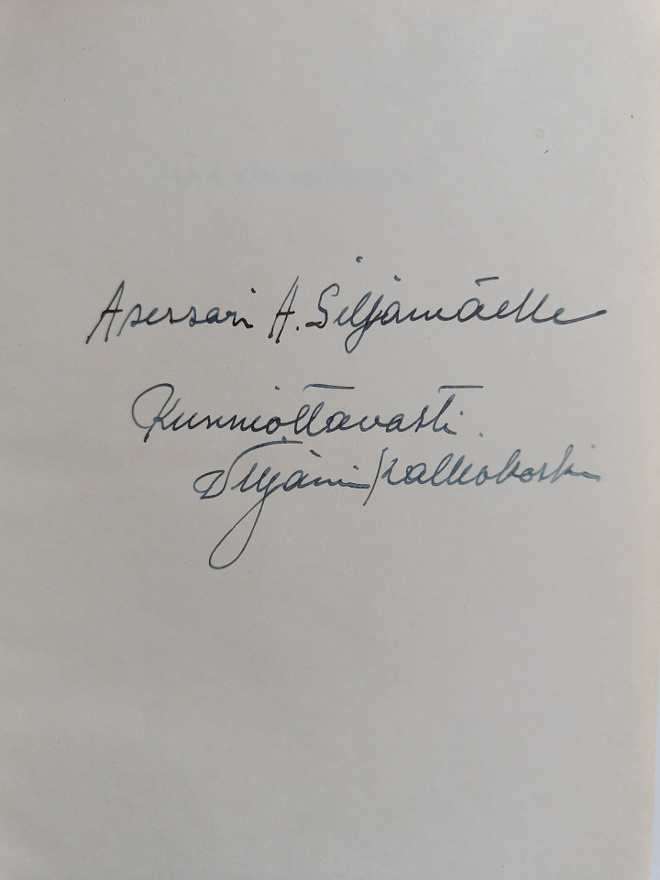 Asessori A. Siljämäelle
Kunnioittavasti
Viljami Kalliokoski